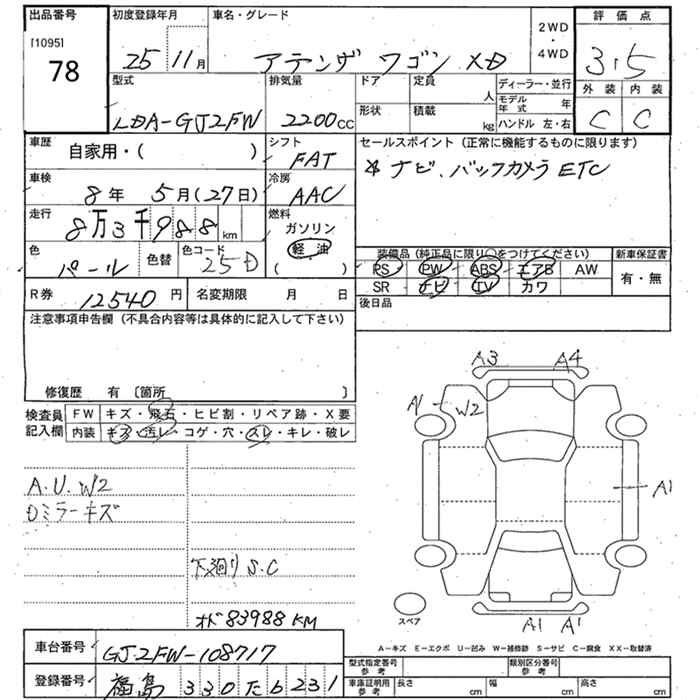 出品番号 初度登録年月 車名・グレード 2WD・4WD 評価点
[1095]
78 25 11月 アテンザ ワゴン XD 3.5
外装 内装
C C
型式 排気量 ドア 定員 人 ディーラー・並行
LDA-GJ2FW 2200CC 形状 積載 kg モデル年式 年
ハンドル 左・右
車歴 自家用・( ) シフト FAT セールスポイント (正常に機能するものに限ります)
ナビ、バックカメラ ETC
車検 8年 5月(27日) 冷房 AAC
走行 8万3千988km 燃料 ガソリン
軽油
( )
色 パール 色替 色コード 25D
装備品 (純正品に限り○をつけてください) 新車保証書
PS PW ABS エアB AW 有・無
SR ナビ TV カワ
R券 12540円 名変期限 月 日 後日品
注意事項申告欄 (不具合内容等は具体的に記入して下さい)
修復歴 有 〔箇所 〕
検査員 FW キズ・飛石・ヒビ割・リペア跡・X要
記入欄 内装 キズ・汚レ・コゲ・穴・スレ・キレ・破レ
A3 A4
A1 W2
A1
A.U.W2
Dミラーキズ
下廻りS.C
オド83988KM
スペア
A1 A1
A-キズ E-エクボ U-凹み W-補修跡 S-サビ C-腐食 XX-取替済
車台番号 GJ2FW-108717
型式指定番号 参考 類別区分番号 参考
登録番号 福島 330た6231
車庫証明用 参考 長さ cm 幅 cm 高さ cm